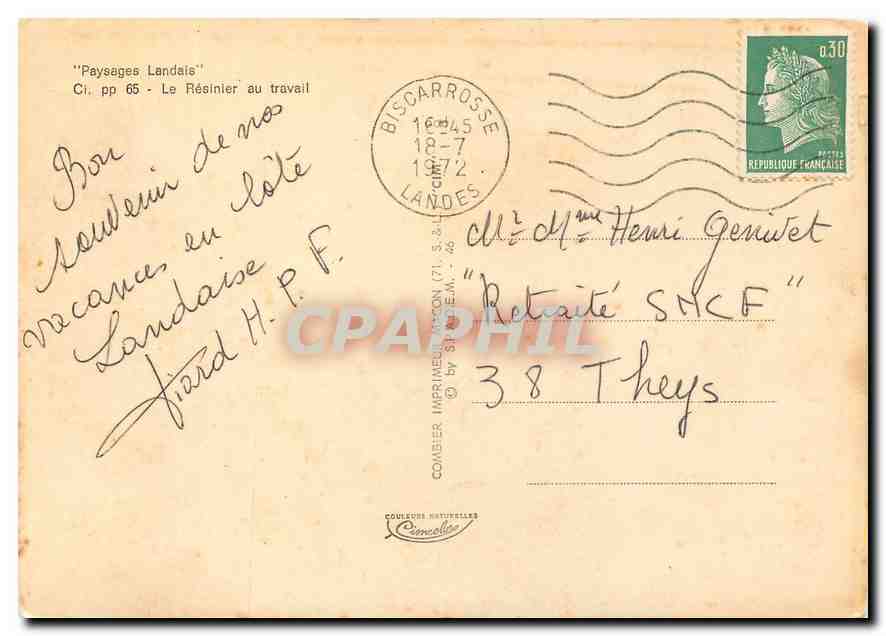 "Paysages Landais"
Ci. pp 65 - Le Résinier au travail
Bon
souvenir de nos
vacances en Côte
Landaise
Fiard H. P. F.
BISCARROSSE
16H45
18-7
1972
LANDES
0,30
POSTES
REPUBLIQUE FRANÇAISE
Mr Mme Henri Genivet
"Retraité SNCF"
38 Theys
COMBIER IMPRIMEUR MACON (71, S.&L.) "CIM"
© by S.E.M. - 46
CPAPHIL
COULEURS NATURELLES
Cimcolor